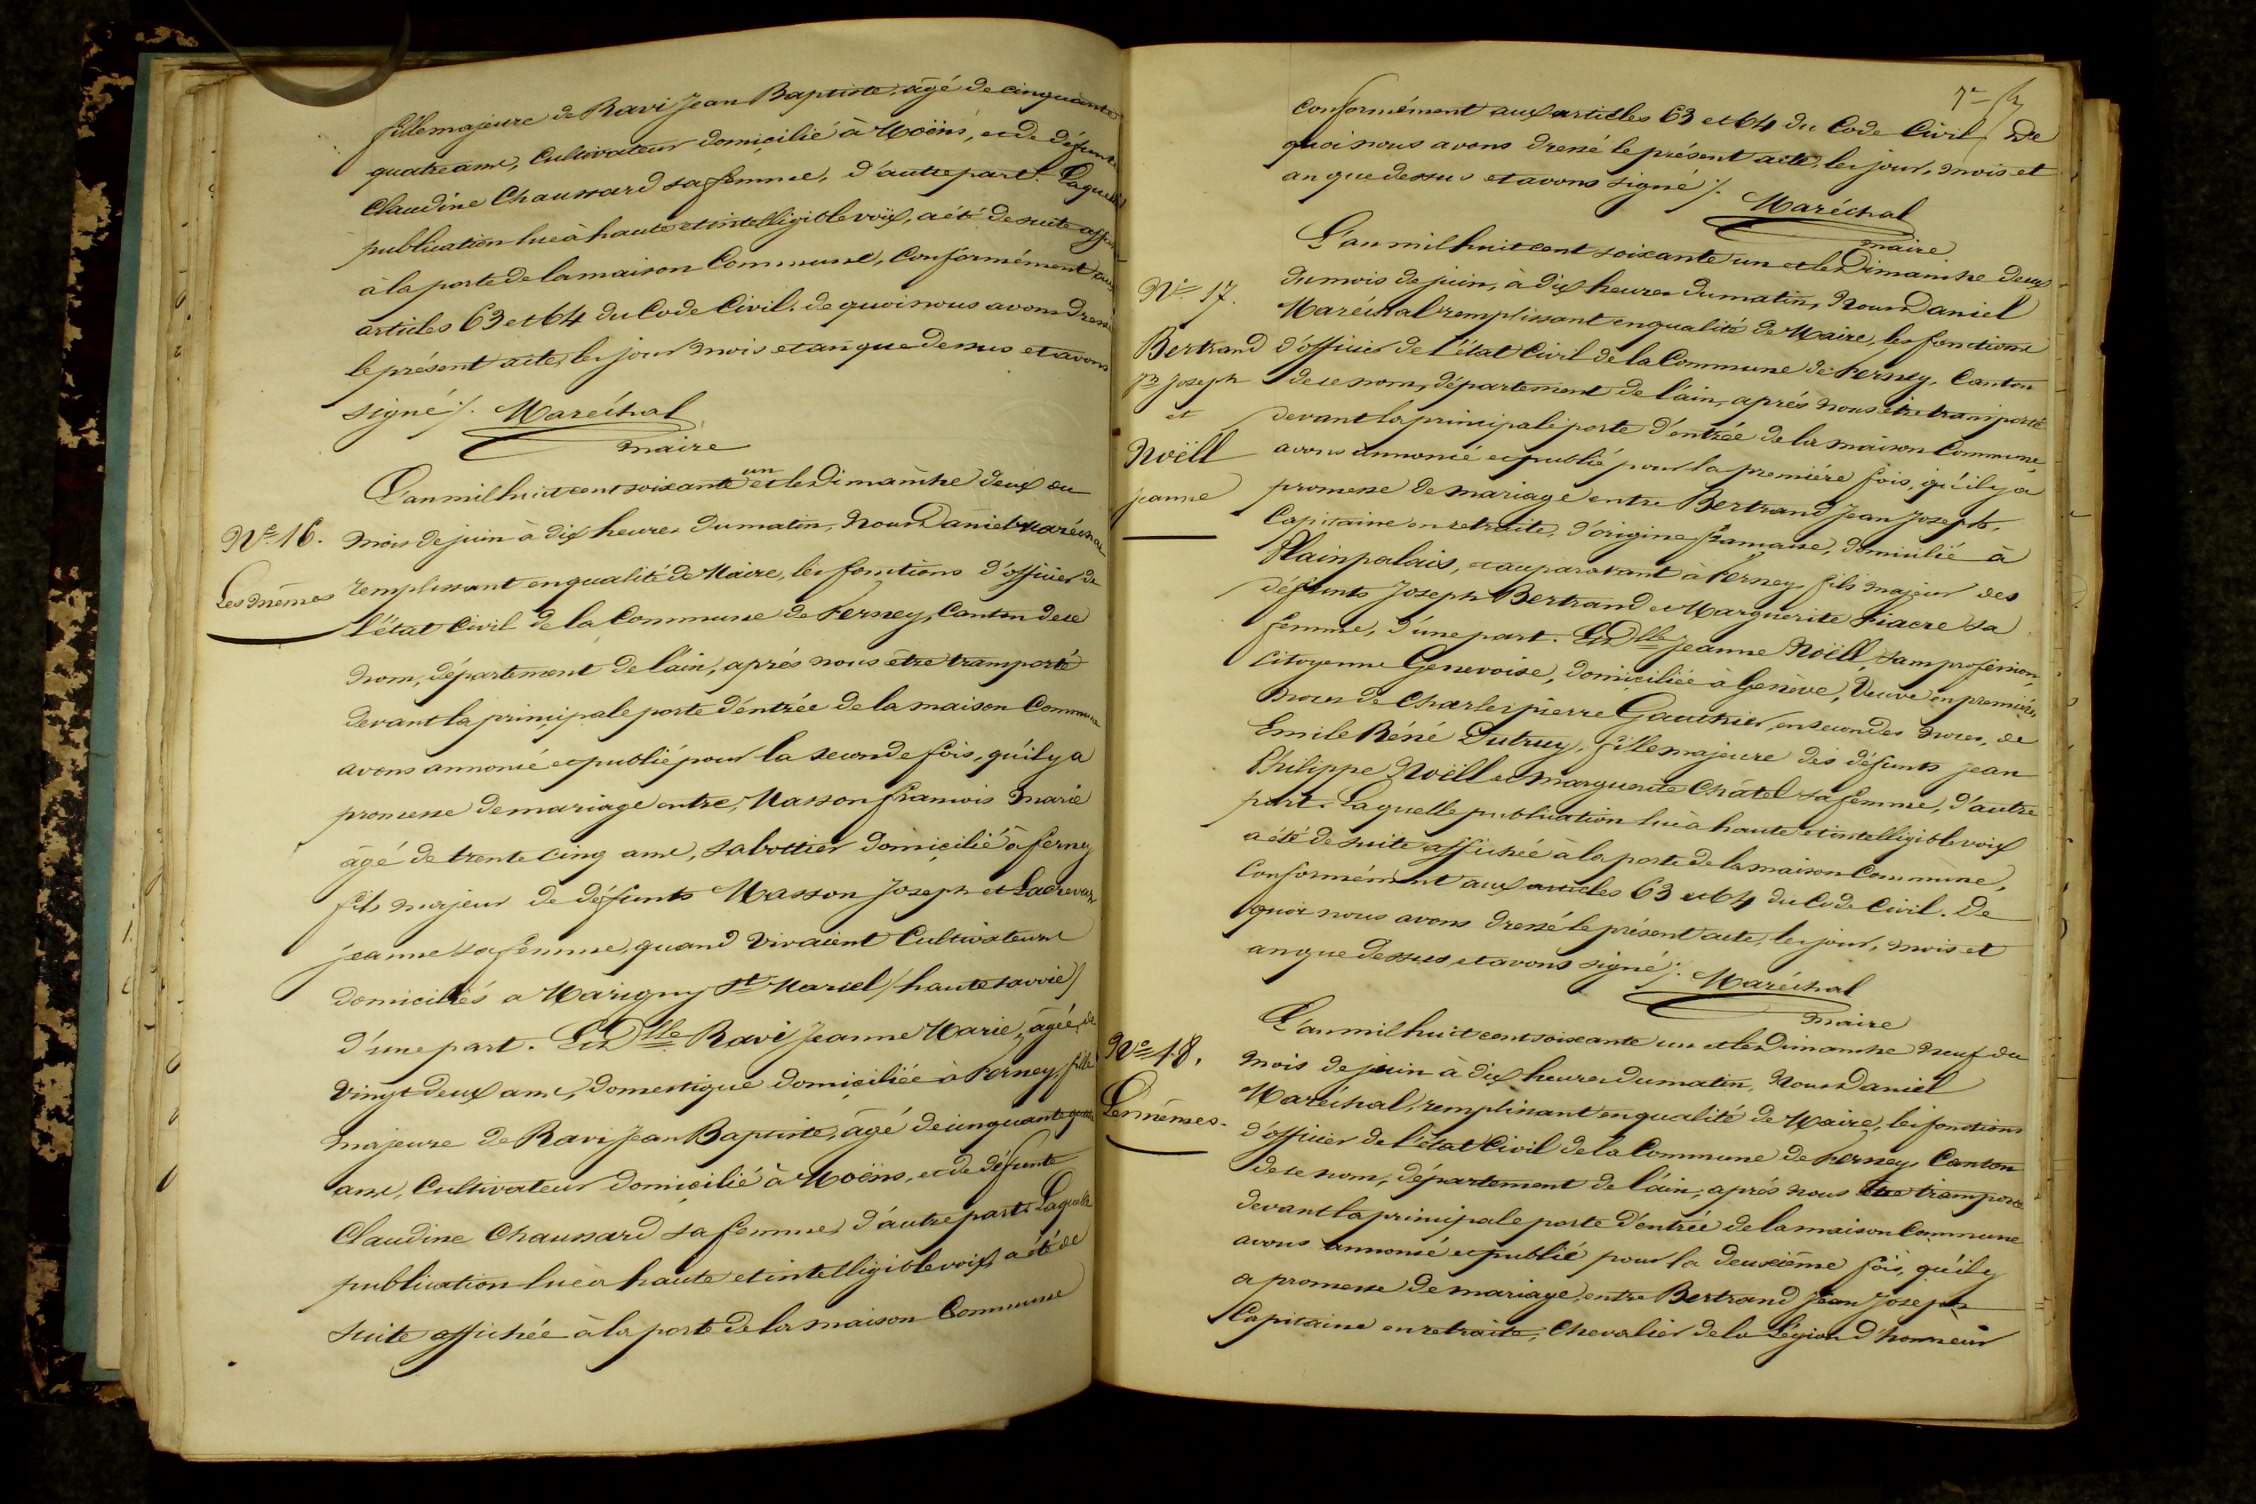 fille majeure de Ravi Jean Baptiste, âgé de cinquante
quatre ans, Cultivateur domicilié à Moëns, et de défunte
Claudine Chaussard sa femme, d'autre part. Laquelle
publication lue à haute et intelligible voix, a été de suite
à la porte de la maison Commune, Conformément aux
articles 63 et 64 du Code Civil. de quoi nous avons dressé
le présent acte, les jour mois et an que dessus et avons
signé ./. Maréchal
maire
L'an mil huit cent soixante un et le Dimanche deux du
N° 16. mois de juin à dix heures du matin, Nous Daniel Maréchal
Les mêmes remplissant en qualité de Maire, les fonctions d'officier de
l'état Civil de la Commune de Ferney, Canton de ce
nom, département de l'ain, aprés nous être transporté
devant la principale porte d'entrée de la maison Commune
avons annoncé et publié pour la seconde fois, qu'il y a
promesse de mariage entre, Masson françois Marie
âgé de trente cinq ans, sabottier domicilié à ferney
fils majeur de défunts Masson Joseph et
jeanne sa femme, quand vivaient Cultivateurs
domiciliés a Marigny St Marcel (haute savoie)
d'une part. Et Dlle Ravi Jeanne Marie, âgée de
vingt deux ans, domestique domiciliée à Ferney, fille
majeure de Ravi Jean Baptiste, âgé de cinquante quatre
ans, Cultivateur domicilié à Moëns, et de défunte
Claudine Chaussard sa femme, d'autre part. Laquelle
publication lue à haute et intelligible voix, a été de
suite affichée à la porte de la maison Commune
7e
conformément aux articles 63 et 64 du Code Civil, de
quoi nous avons dressé le présent acte, les jour, mois et
an que dessus et avons signé ./.
Maréchal
maire
L'an mil huit cent soixante un et le Dimanche deux
N° 17. du mois de juin, à dix heures du matin, Nous Daniel
Maréchal remplissant en qualité de Maire, les fonctions
Bertrand d'officier de l'état Civil de la Commune de Ferney, Canton
Jn Joseph de ce nom, département de l'ain, aprés nous être transporté
et devant la principale porte d'entrée de la maison Commune,
Noëll avons annoncé et publié pour la premiére fois, qu'il y a
jeanne promesse de mariage entre Bertrand Jean Joseph,
Capitaine en retraite, d'origine française, domicilié à
Plainpalais, et auparavant à Ferney, fils majeur des
défunts Joseph Bertrand et Marguerite Fiacre sa
femme, d'une part. Et Dlle Jeanne Noëll, sans profession,
Citoyenne Genevoise, domiciliée à Genève, Veuve en premières
noces de Charles pierre Gauthier, en secondes noces, de
Emile Réné Dutruy, fille majeure des défunts jean
Philippe Noëll et Marguerite Châtel sa femme, d'autre
part. Laquelle publication lue à haute et intelligible voix
a été de suite affichée à la porte de la maison Commune,
Conformément aux articles 63 et 64 du Code Civil. De
quoi nous avons dressé le présent acte, les jour, mois et
an que dessus, et avons signé ./. Maréchal
maire
L'an mil huit cent soixante un et le Dimanche neuf du
N° 18. mois de juin à dix heures du matin, Nous Daniel
Les mêmes. Maréchal, remplissant en qualité de Maire, les fonctions
d'officier de l'état Civil de la Commune de Ferney, Canton
de ce nom, département de l'ain, aprés nous être transporté
devant la principale porte d'entrée de la maison Commune
avons annoncé et publié pour la deuxiême fois, qu'il y
a promesse de mariage, entre Bertrand Jean Joseph
Capitaine en retraite, Chevalier de la Légion d'honneur